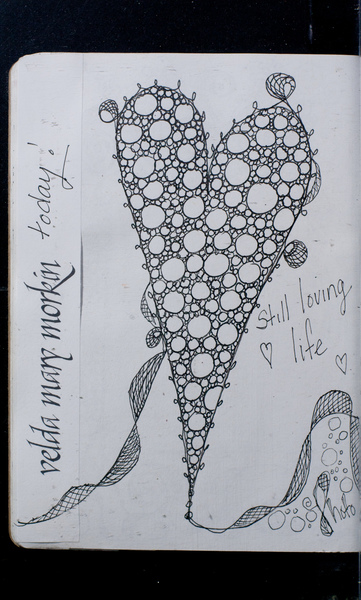 velda mary morkin today!
Still loving
life